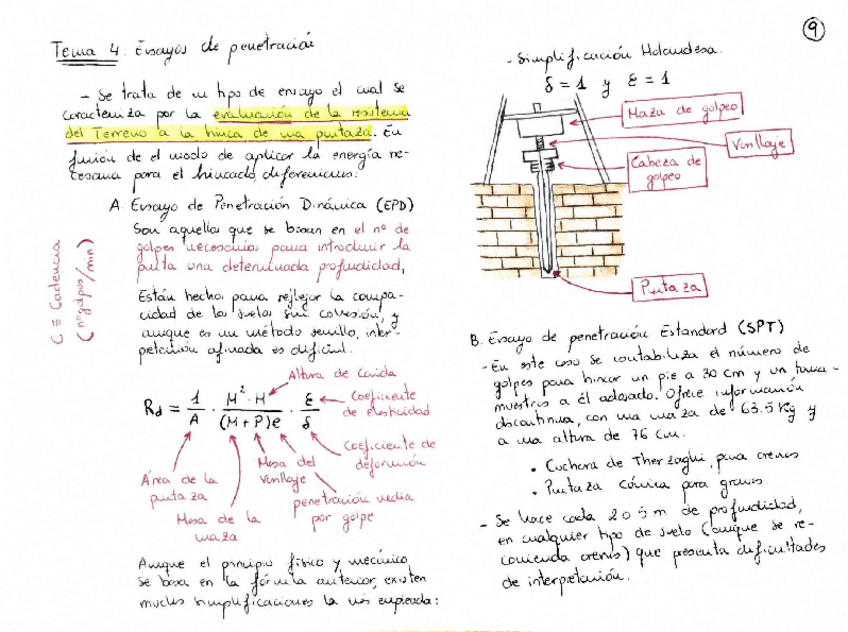 9
Tema 4. Ensayos de penetración
- Se trata de un tipo de ensayo el cual se
caracteriza por la evaluación de la resistencia
del Terreno a la hinca de una puntaza. En
función de el modo de aplicar la energía ne-
cesaria para el hincado, diferenciamos:
A. Ensayo de Penetración Dinámica (EPD)
Son aquellos que se basan en el nº de
golpes necesarios para introducir la
punta una determinada profundidad,
Están hechos para reflejar la compa-
cidad de los suelos sin cohesión, y
aunque es un método sencillo, inter-
petación afinada es difícil.
C ≡ Cadencia
(nºgolpes/min)
Altura de caida
Rd = 1/A · M²·H/(M+P)e · ε/δ
Coeficiente
de elasticidad
Coeficiente de
deformación
Área de la
puntaza
Masa de la
maza
Masa del
varillaje
penetración media
por golpe
Aunque el principio físico y mecánico
se basa en la fórmula anterior, existen
muchas simplificaciones la más empleada:
- Simplificación Holandesa.
δ = 1 y ε = 1
Maza de golpeo
Varillaje
Cabeza de
golpeo
Puntaza
B. Ensayo de penetración Estandard (SPT)
- En este caso se contabiliza el número de
golpes para hincar un pie a 30 cm y un toma-
muestras a él adosado. Ofrece información
discontinua, con una maza de 63.5 Kg y
a una altura de 76 cm.
• Cuchara de Therzaghi, para arenas
• Puntaza cónica para gravas
- Se hace cada 2 o 5 m de profundidad,
en cualquier tipo de suelo (aunque se re-
comienda arenas) que presenta dificultades
de interpretación.